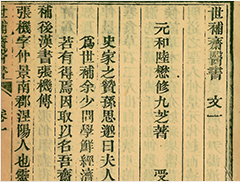 世補齋醫書 文一
元和陸懋修九芝著 受
史家之贊孫思邈曰夫人
爲世補余少問學鮮經濟
若有得焉因取以名吾齋
補後漢書張機傳
張機字仲景南郡涅陽人也靈
世補齋醫書 卷一